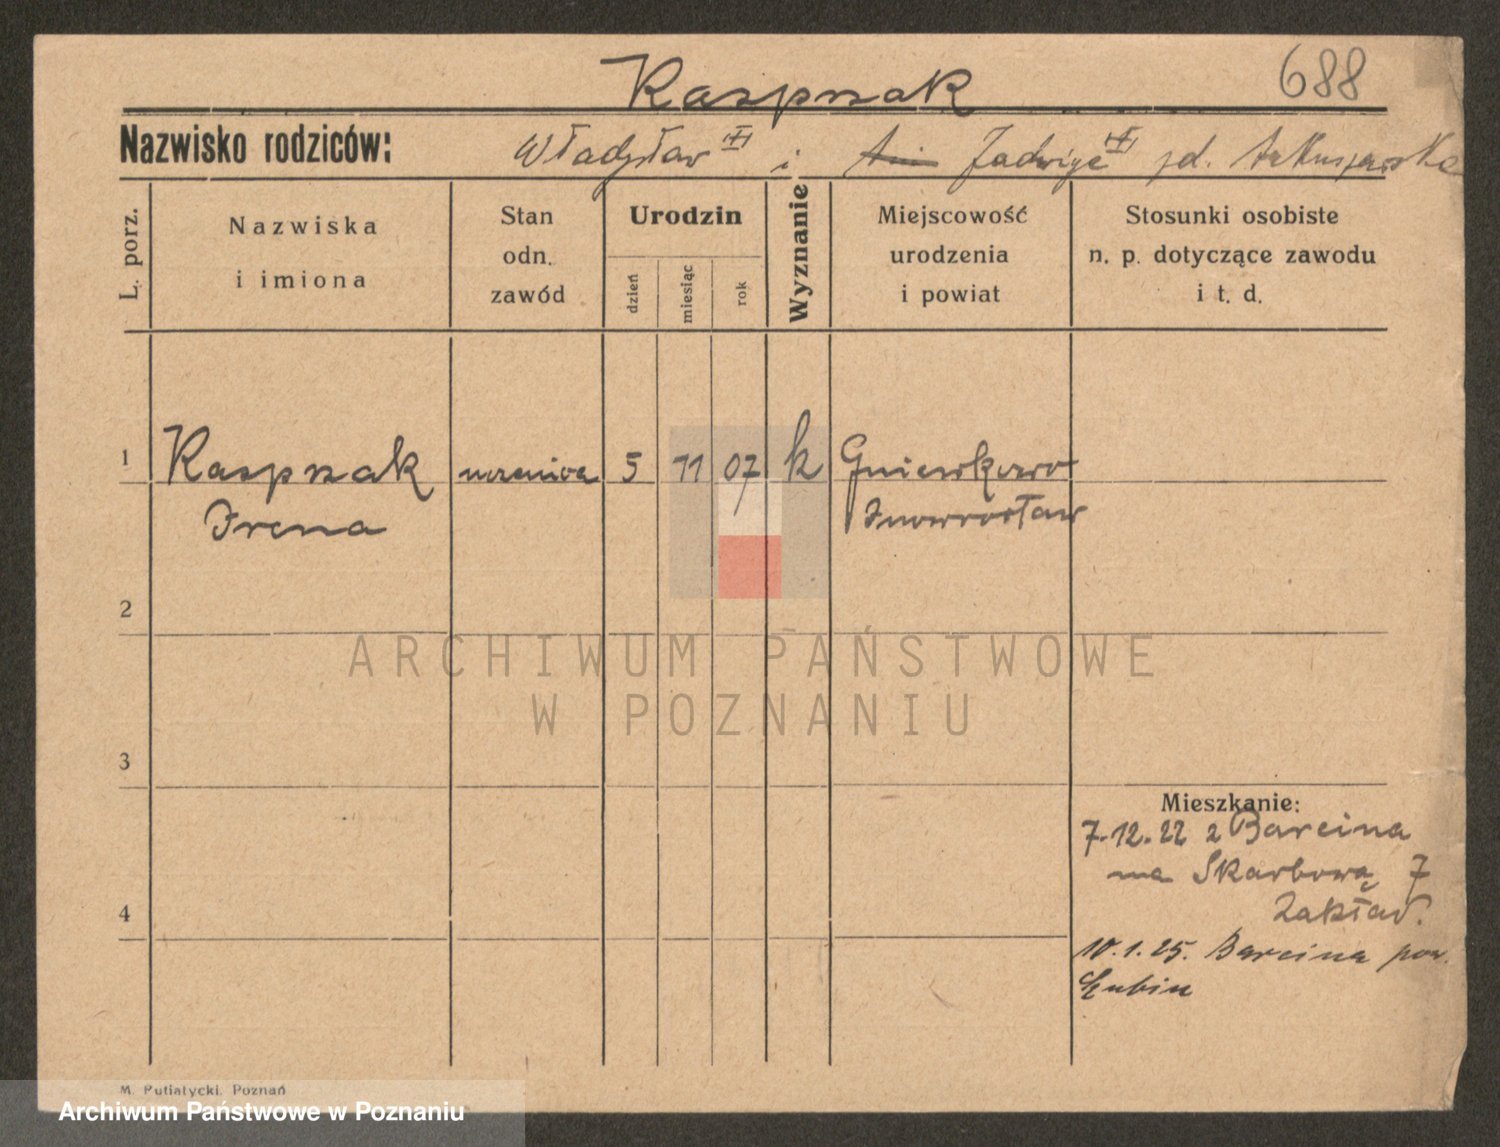 688
Kasprzak
Nazwisko rodziców: Władysław i Jadwiga
L. porz.
Nazwiska
i imiona
Stan
odn.
zawód
Urodzin
dzień
miesiąc
rok
Wyznanie
Miejscowość
urodzenia
i powiat
Stosunki osobiste
n. p. dotyczące zawodu
i t. d.
1 Kasprzak uczenica 5 11 07 k Gniewkowo
Irena Inowrocław
2
ARCHIWUM PAŃSTWOWE
W POZNANIU
3
Mieszkanie:
7.12.22 z Barcina
na Skarbową 7
4
Zakład.
10.1.25. Barcina pow.
M. Putiatycki, Poznań
Archiwum Państwowe w Poznaniu